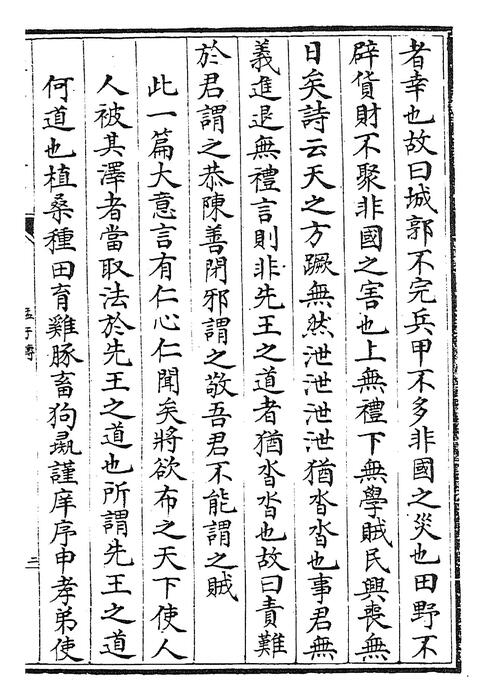 者幸也故曰城郭不完兵甲不多非國之災也田野不
辟貨財不聚非國之害也上無禮下無學賊民興喪無
日矣詩云天之方蹶無然泄泄泄泄猶沓沓也事君無
義進退無禮言則非先王之道者猶沓沓也故曰責難
於君謂之恭陳善閉邪謂之敬吾君不能謂之賊
此一篇大意言有仁心仁聞矣將欲布之天下使人
人被其澤者當取法於先王之道也所謂先王之道
何道也植桑種田育雞豚畜狗彘謹庠序申孝弟使
孟子傳
三